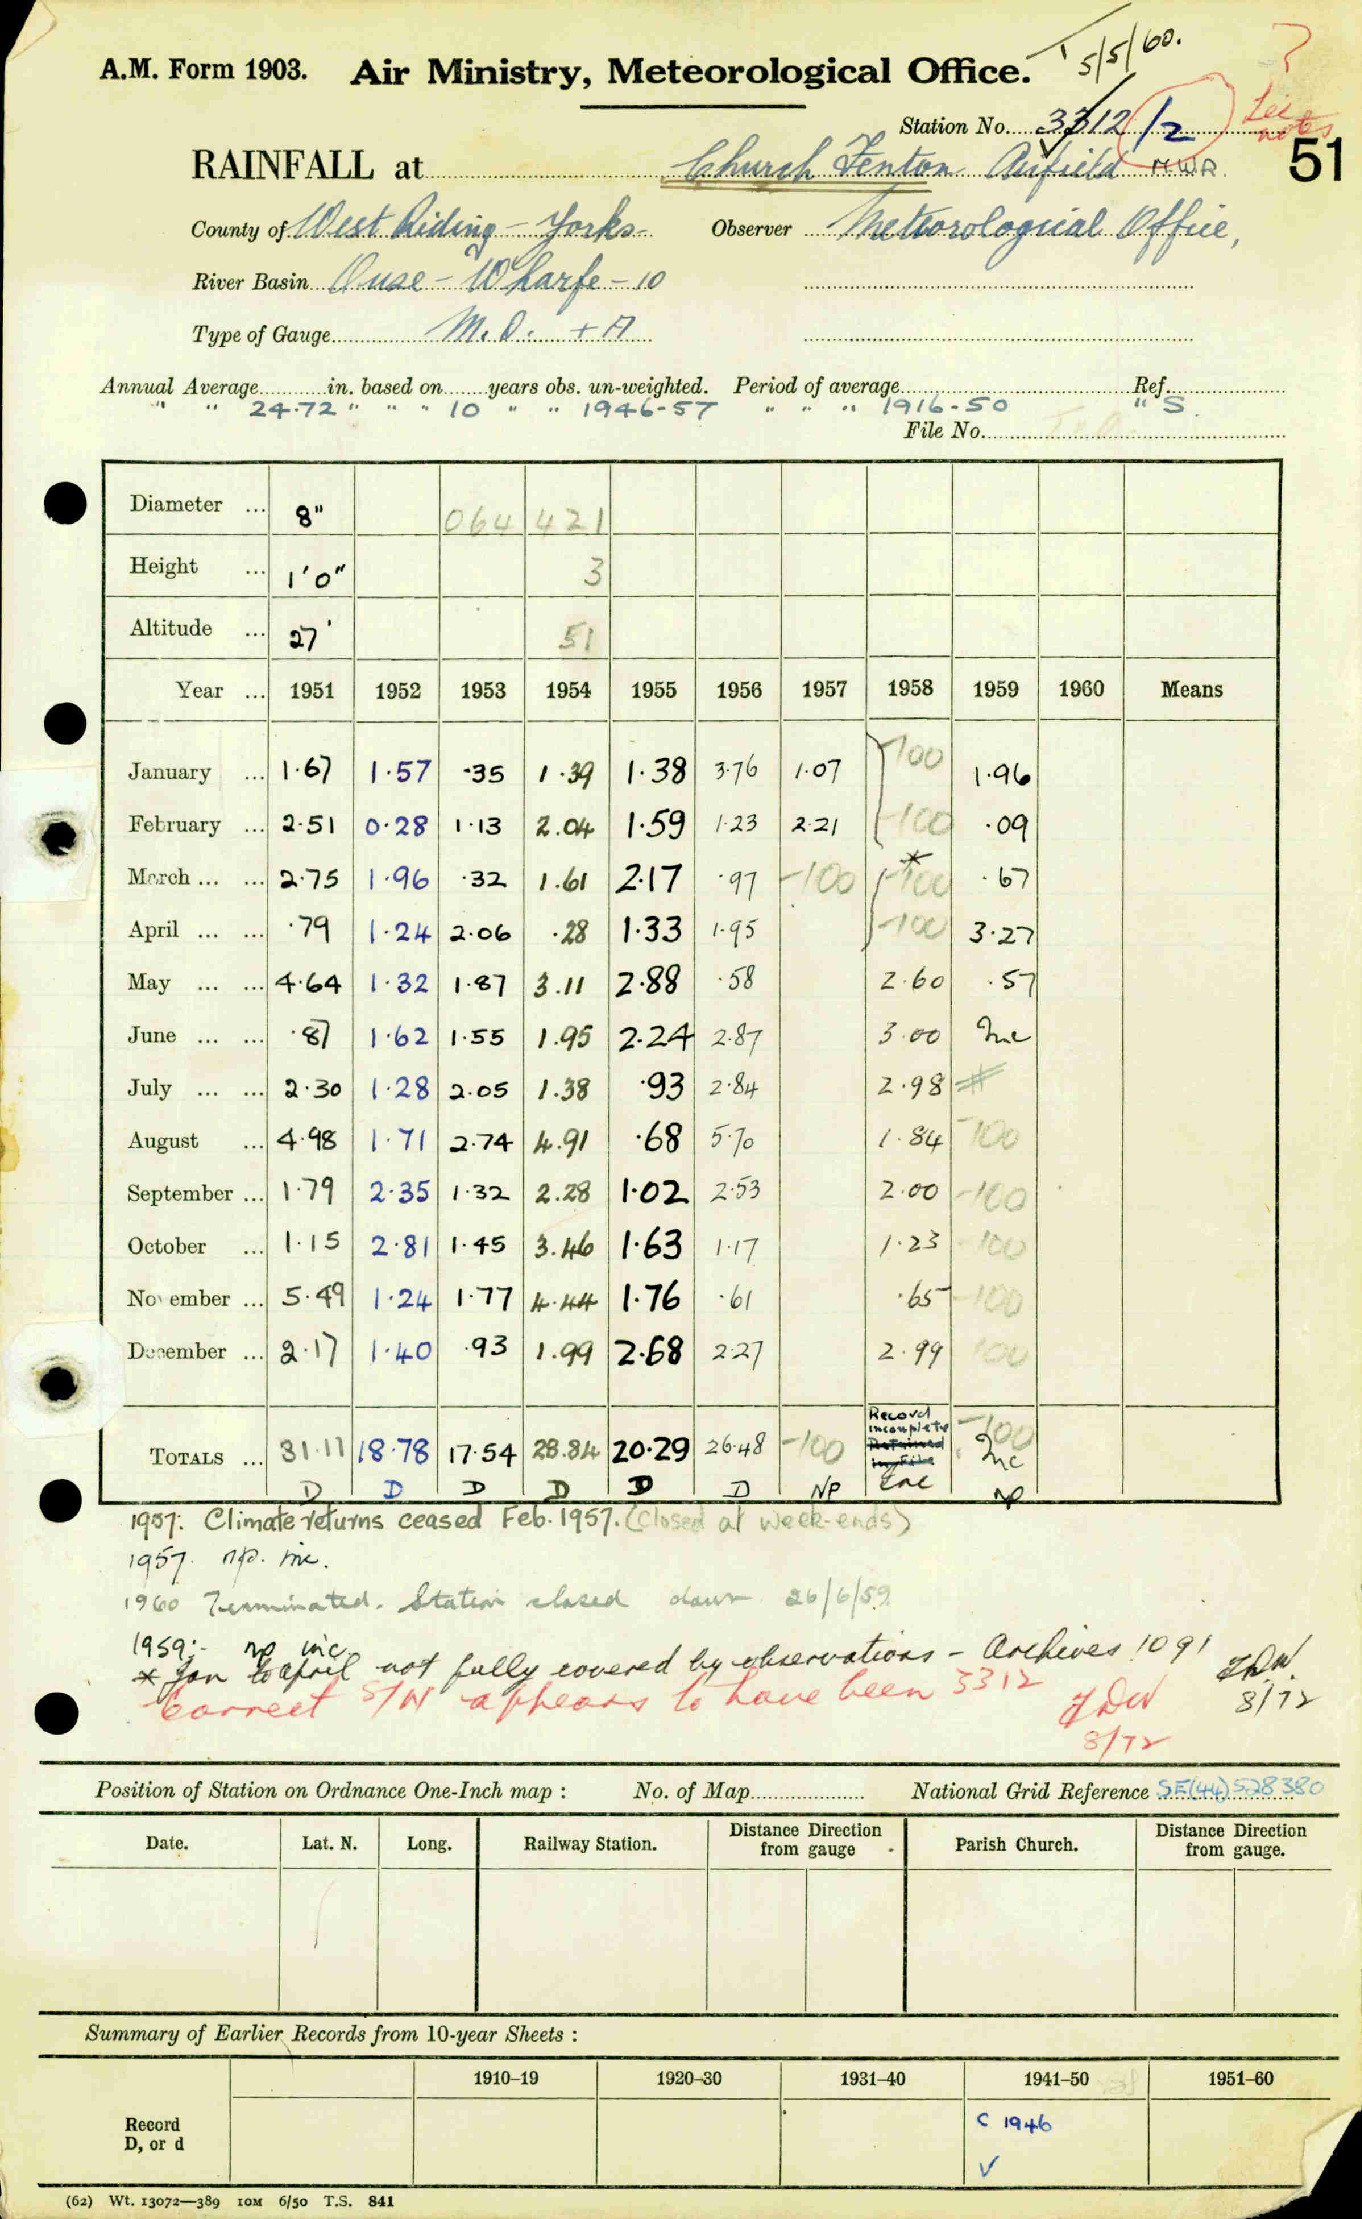 5/5/60.
A.M. Form 1903. Air Ministry, Meteorological Office.
Station No. 3312/2 See notes
RAINFALL at Church Fenton Airfield MWR 51
County of West Riding - Yorks. Observer Meteorological Office,
River Basin Ouse - Wharfe - 10
Type of Gauge M.O. + A
Annual Average in. based on years obs. un-weighted. Period of average Ref.
" " 24.72 " " " 10 " " 1946-57 " " " 1916-50 " S.
File No.
Diameter ... 8" 064 421
Height ... 1'0" 3
Altitude ... 27' 51
Year ... 1951 1952 1953 1954 1955 1956 1957 1958 1959 1960 Means
January ... 1.67 1.57 .35 1.39 1.38 3.76 1.07 -100 1.96
February ... 2.51 0.28 1.13 2.04 1.59 1.23 2.21 -100 .09
March ... ... 2.75 1.96 .32 1.61 2.17 .97 -100 * -100 .67
April ... ... .79 1.24 2.06 .28 1.33 1.95 -100 3.27
May ... ... 4.64 1.32 1.87 3.11 2.88 .58 2.60 .57
June ... ... .87 1.62 1.55 1.95 2.24 2.87 3.00 Inc
July ... ... 2.30 1.28 2.05 1.38 .93 2.84 2.98
August ... 4.98 1.71 2.74 4.91 .68 5.70 1.84 -100
September ... 1.79 2.35 1.32 2.28 1.02 2.53 2.00 -100
October ... 1.15 2.81 1.45 3.46 1.63 1.17 1.23 -100
November ... 5.49 1.24 1.77 4.44 1.76 .61 .65 -100
December ... 2.17 1.40 .93 1.99 2.68 2.27 2.99 -100
TOTALS ... 31.11 18.78 17.54 28.84 20.29 26.48 -100 Record incomplete Retained in File Inc -100 Inc
D D D D D D NP NP
1957. Climate returns ceased Feb. 1957. (Closed at week-ends)
1957. np. inc.
1960 Terminated. Station closed down 26/6/59
1959:- np inc
* Jan to April not fully covered by observations - Archives 1091 FDW. 8/72
Correct S/N appears to have been 3312 FDW 8/72
Position of Station on Ordnance One-Inch map : No. of Map National Grid Reference SE(44)528380
Date. Lat. N. Long. Railway Station. Distance from gauge Direction Parish Church. Distance from gauge. Direction
Summary of Earlier Records from 10-year Sheets :
1910–19 1920–30 1931–40 1941–50 1951–60
Record D, or d C 1946
V
(62) Wt. 13072—389 10M 6/50 T.S. 841